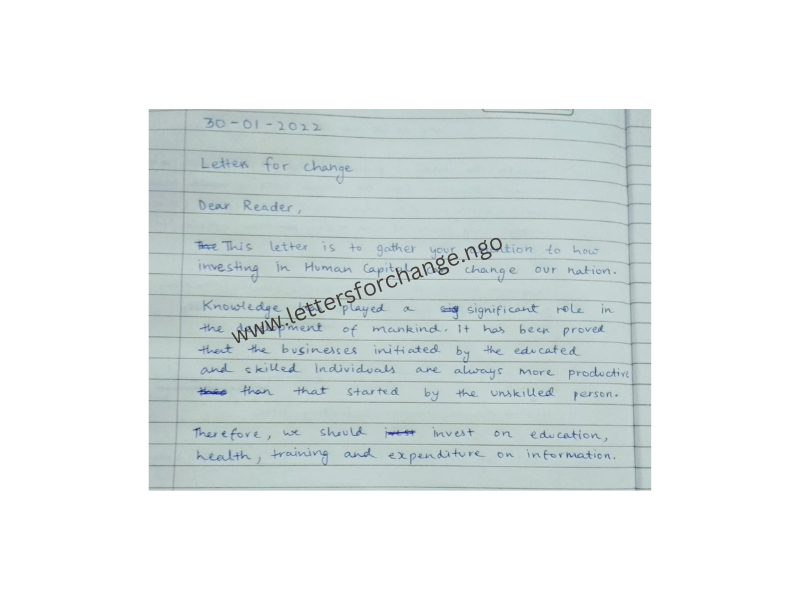 30-01-2022
Letters for change
Dear Reader,
This letter is to gather your to how
investing in Human Capital change our nation.
Knowledge played a significant role in
the development of mankind. It has been proved
that the businesses initiated by the educated
and skilled individuals are always more productive
than that started by the unskilled person.
Therefore, we should invest on education,
health, training and expenditure on information.
www.lettersforchange.ngo